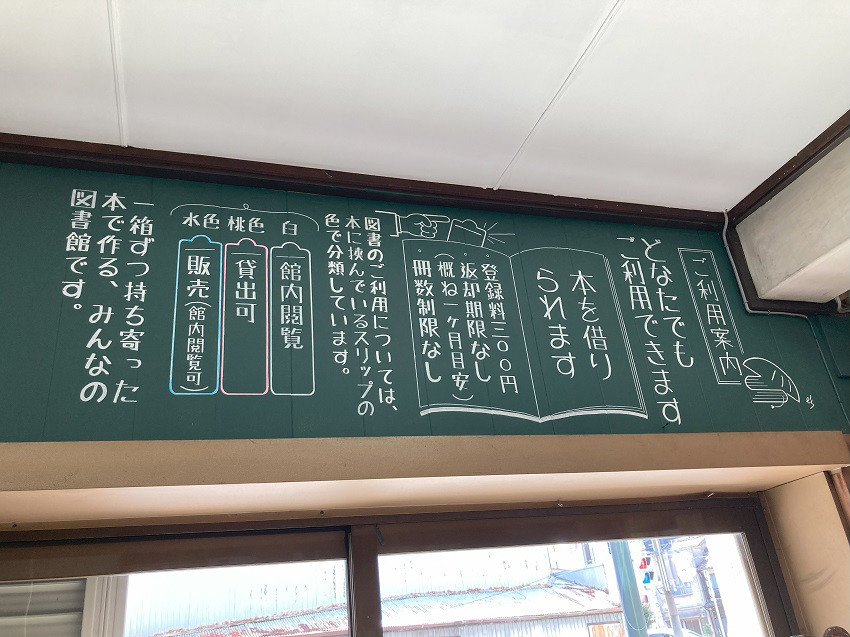 ご利用案内
どなたでも
ご利用できます
本を借り
られます
登録料三〇〇円
返却期限なし
(概ね一ヶ月目安)
冊数制限なし
図書のご利用については、
本に挟んでいるスリップの
色で分類しています。
白
館内閲覧
桃色
貸出可
水色
販売(館内閲覧可)
一箱ずつ持ち寄った
本で作る、みんなの
図書館です。